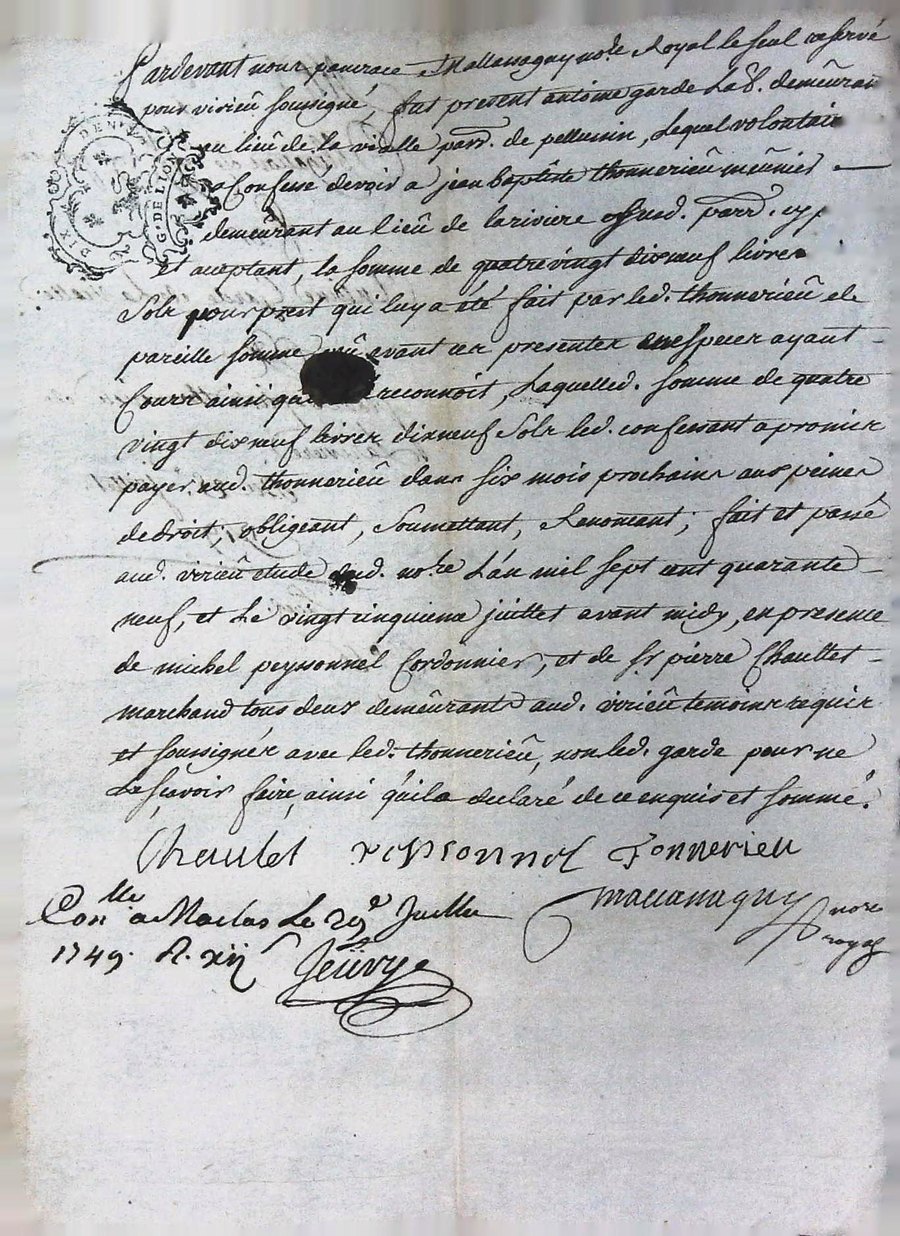 Pardevant nous pancrace Mallassagny no.re Royal le seul reservé
pour virieû soussigné, fut present antoine garde La.r demeûran
au lieû de la vialle parr. de pellussin, Lequel volontair
a Confessé devoir a jean baptiste thonnerieû meûnier
demeurant au lieû de la riviere susd. parr. cy
et aceptant, la somme de quatre vingt dix neuf livres
Sols pour prest qui luy a été fait par led. thonnerieû de
pareille somme avant ces presentes en especes ayant
Cours ainsi qu reconnoit, Laquelled. somme de quatre
vingt dix neuf livres dix neuf Sols led. confessant a promis
payer aud. thonnerieû dans six mois prochains aux peines
de droit, obligeant, Soumettant, Renonceant; fait et passé
aud. virieû etude dud. no.re L'an mil sept cent quarante
neuf, et Le vingt cinquieme juillet avant midy, en presence
de michel peyssonnel Cordonnier, et de Sr. pierre Chaullet
marchand tous deux demeûrants aud. virieû temoins requis
et soussignés avec led. thonnerieû, non led. garde pour ne
La sçavoir faire, ainsi qu'il a declaré de ce enquis et sommé.
Chaulet peyssonnel Tonnerieu
Con.lle a Maclas Le 29e Juillet
mallassagny no.re royal
1749. R. xij s
DIX DENIERS
G. DE LION